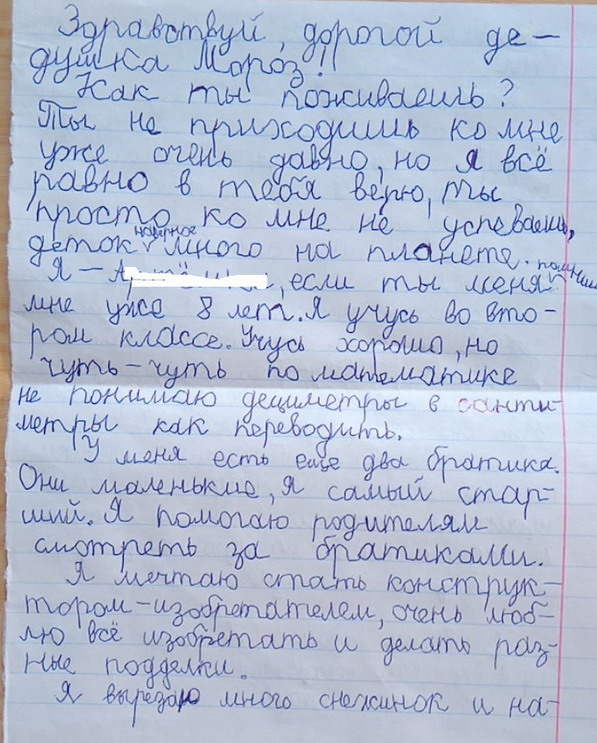 Здравствуй, дорогой де-
душка Мороз!!
Как ты поживаешь?
Ты не приходишь ко мне
уже очень давно, но я всё
равно в тебя верю, ты
просто ко мне не успеваешь,
наверное
деток много на планете.
Я – , если ты меня помнишь
мне уже 8 лет. Я учусь во вто-
ром классе. Учусь хорошо, но
чуть-чуть по математике
не понимаю дециметры в санти-
метры как переводить.
У меня есть еще два братика.
Они маленькие, я самый стар-
ший. Я помогаю родителям
смотреть за братиками.
Я мечтаю стать конструк-
тором-изобретателем, очень люб-
лю всё изобретать и делать раз-
ные подделки.
Я вырезаю много снежинок и на-